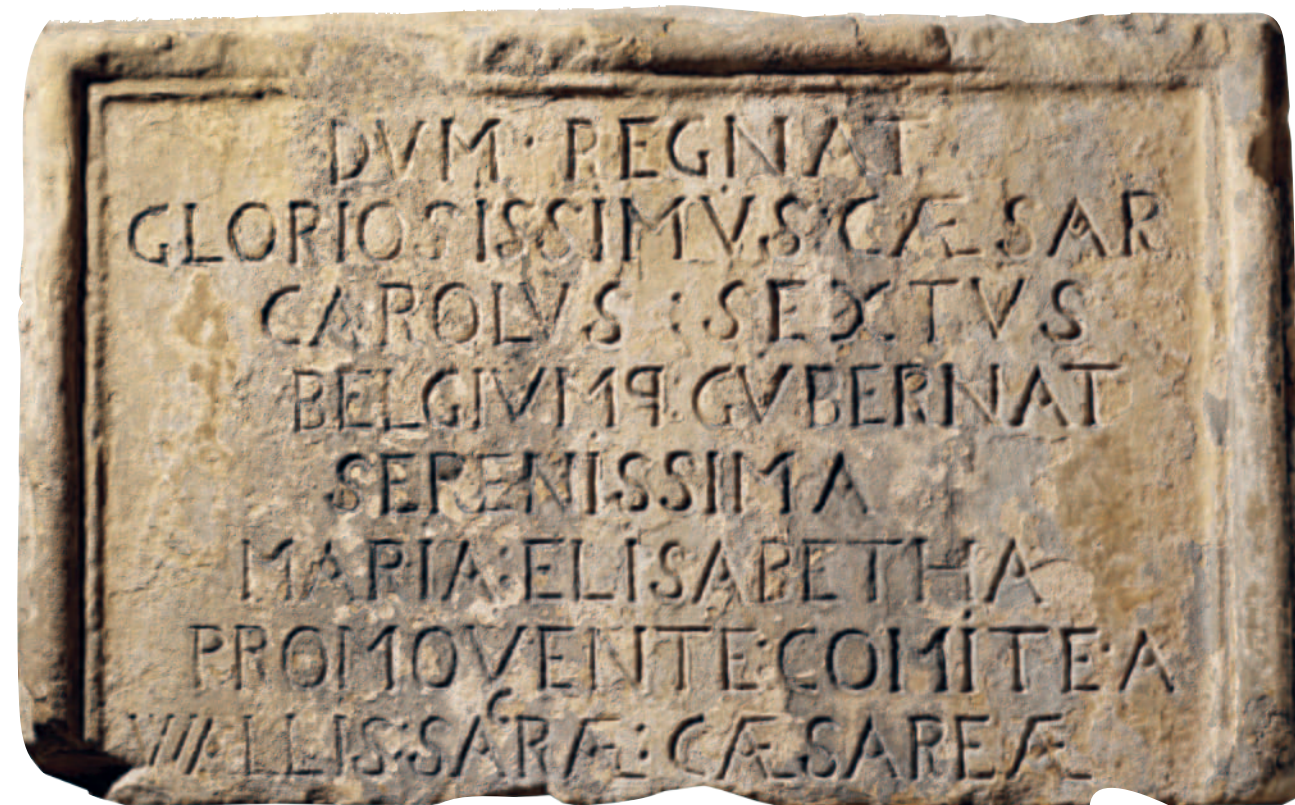 DVM · REGNAT
GLORIOSISSIMVS · CÆSAR
CAROLVS : SEXTVS
BELGIVMQ. GVBERNAT
SERENISSIMA
MARIA · ELISABETHA
PROMOVENTE : COMITE · A
WALLIS : SACRÆ : CÆSAREÆ